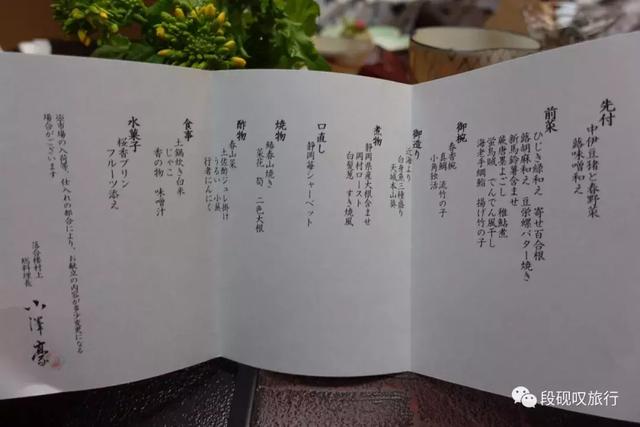 先付
中伊豆猪と春野菜
蕗味噌和え
前菜
ひじき緑和え 寄せ百合根
蕗胡麻和え 豆栄螺バター焼き
新馬鈴薯含ませ
蕨唐墨よごし 稚鮎煮
蛍烏賊てんでん風干し
海老手綱鮨 揚げ竹の子
御椀
春香椀
真鯛 流竹の子
小角独活
御造り
近海より
白身魚三種盛り
天城本山葵
煮物
静岡県産大根含ませ
岡村ロースト
白髪葱 すき焼風
口直し
静岡苺シャーベット
焼物
鰆春山焼き
菜花 筍 二色大根
酢物
春山菜
土佐酢ジュレ掛け
うるい 小蕨
行者にんにく
食事
土鍋炊き白米
じゃこ
香の物 味噌汁
水菓子
桜香プリン
フルーツ添え
※市場の入荷等、仕入れの都合により、お献立の内容が多少変更になる
場合がございます
落合楼村上
総料理長
小澤 豪
段砚叹旅行